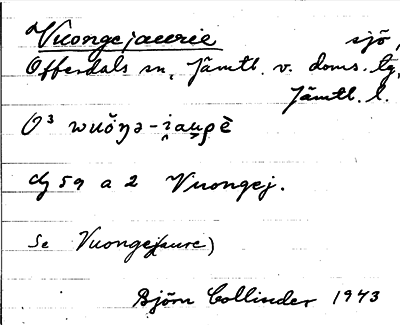 Vuongejaurie sjö,
Offerdals sn, Jämtl. v. doms. tg,
Jämtl. l.
O³ wuŏŋə-i̯au̯ρē̆
dj 59 a 2 Vuongej.
Se Vuongej(aure)
Björn Collinder 1943